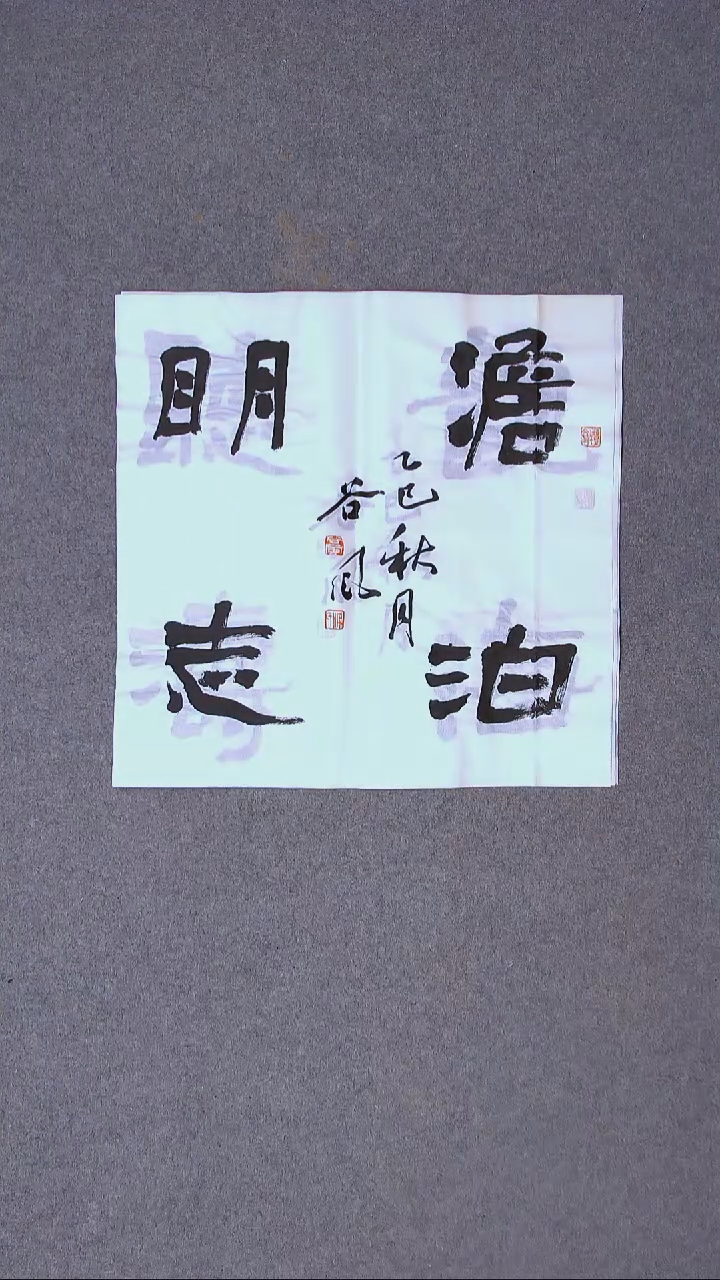 澹泊
明志
乙巳秋月
谷风